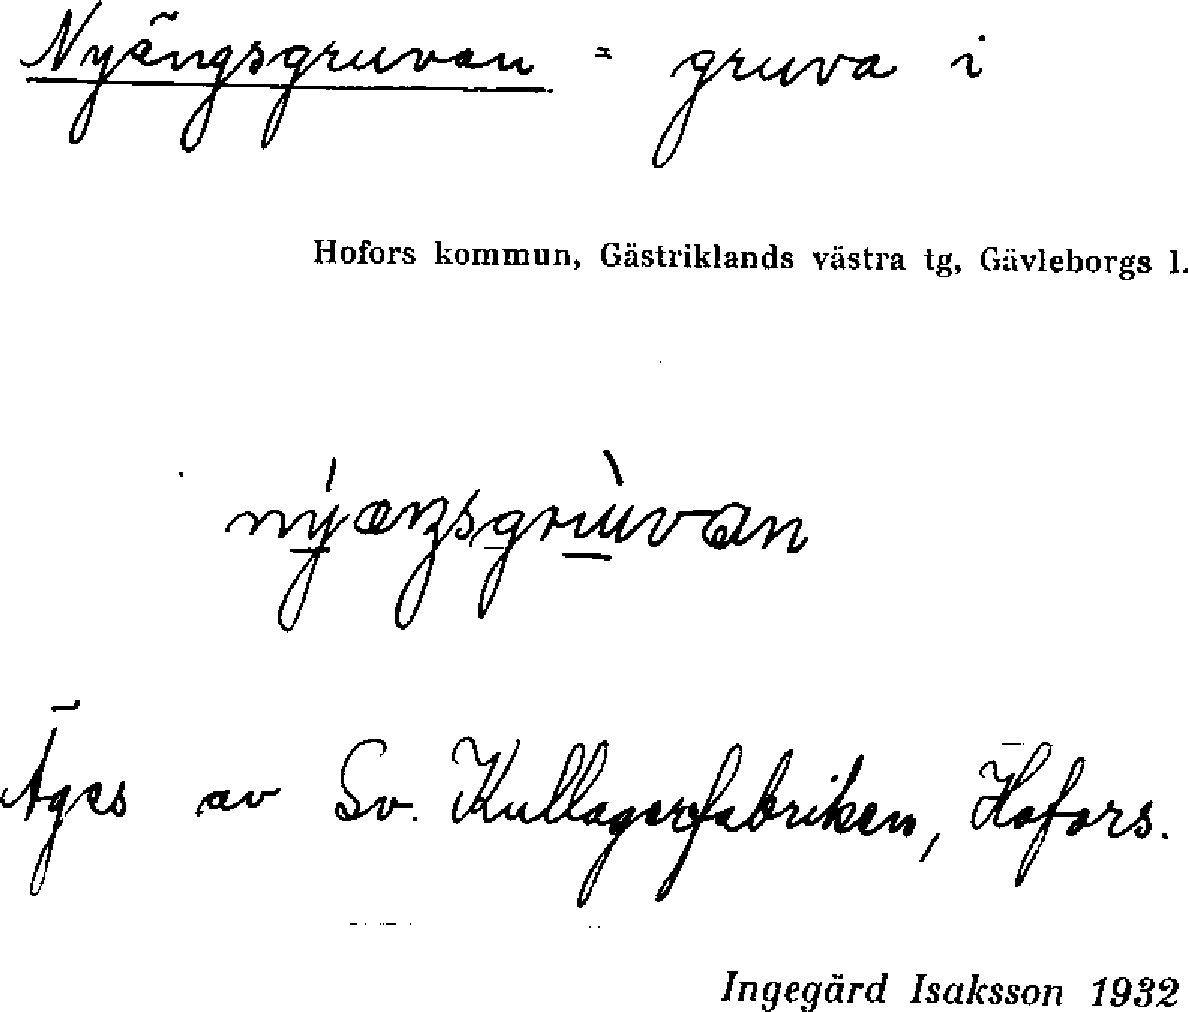 Nyängsgruvan = gruva i
Hofors kommun, Gästriklands västra tg, Gävleborgs l.
Äges av Sv. Kullagerfabriken, Hofors.
Ingegärd Isaksson 1932